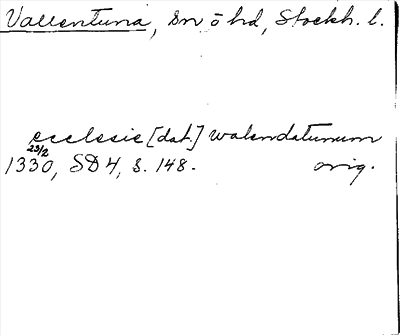 Vallentuna, sn o hd, Stockh. l.
ecclesie [dat.] walendatunum
23/2
1330, SD 4, s. 148. orig.